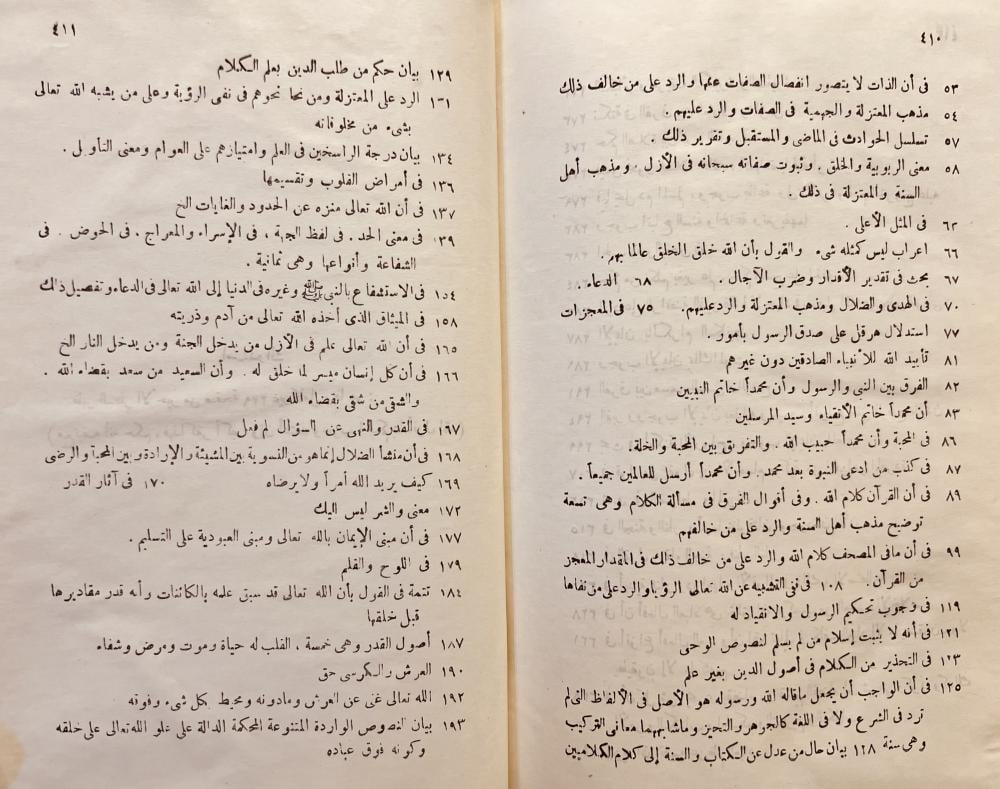 ٤١٠
٥٣ فى أن الذات لا يتصور انفصال الصفات عنها والرد على من خالف ذلك
٥٤ مذهب المعتزلة و الجهمية فى الصفات و الرد عليهم .
٥٧ تسلسل الحوادث فى الماضى والمستقبل وتقرير ذلك .
٥٨ معنى الربوبية والخلق . وثبوت صفاته سبحانه فى الأزل . ومذهب أهل
السنة والمعتزلة فى ذلك .
٦٢ فى المثل الأعلى .
٦٦ اعراب ليس كمثله شىء والقول بأن الله خلق الخلق عالما بهم .
٦٧ بحث فى تقدير الأقدار وضرب الآجال . ٦٨ الدعاء .
٧٠ فى الهدى والضلال ومذهب المعتزلة والرد عليهم. ٧٥ فى المعجزات
٧٧ استدلال هرقل على صدق الرسول بأمور .
٨١ تأييد الله للأنبياء الصادقين دون غيرهم
٨٢ الفرق بين النبى والرسول وأن محمداً خاتم النبيين
٨٣ أن محمداً خاتم الأنقياء وسيد المرسلين
٨٦ فى المحبة وأن محمداً حبيب الله . والتفريق بين المحبة والخلة.
٨٧ فى كذب من ادعى النبوة بعد محمد . وأن محمداً أرسل للعالمين جميعاً .
٨٩ فى أن القرآن كلام الله . وفى أقوال الفرق فى مسألة الكلام وهى تسعة
توضيح مذهب أهل السنة والرد على من خالفهم
٩٩ فى أن مافى المصحف كلام الله والرد على من خالف ذلك فى المقدار المعجز
من القرآن . ١٠٨ فى نفى التشبيه عن الله تعالى الرؤيا والرد على من نفاها
١١٩ فى وجوب تحكيم الرسول والانقياد له
١٢١ فى أنه لا يثبت إسلام من لم يسلم لنصوص الوحى
١٢٣ فى التحذير من الكلام فى أصول الدين بغير علم
١٢٥ فى أن الواجب أن يجعل ماقاله الله ورسوله هو الأصل فى الألفاظ التى لم
ترد فى الشرع ولا فى اللغة كالجوهر والتحيز وماشابههما معانى التركيب
وهى ستة ١٢٨ بيان حال من عدل عن الكتاب والسنة إلى كلام الكلاميين
٤١١
١٢٩ بيان حكم من طلب الدين بعلم الكلام
١٣١ الرد على المعتزلة ومن نحا نحوهم فى نفى الرؤية وعلى من يشبه الله تعالى
بشىء من مخلوقاته
١٣٤ بيان درجة الراسخين فى العلم وامتيازهم على العوام ومعنى التأويل .
١٣٦ فى أمراض القلوب وتقسيمها
١٣٧ فى أن الله تعالى منزه عن الحدود والغايات الخ
١٣٩ فى معنى الحد . فى لفظ الجهة ، فى الإسراء والمعراج ، فى الحوض . فى
الشفاعة وأنواعها وهى ثمانية .
١٥٤ فى الاستشفاع بالنبى ﷺ وغيره فى الدنيا إلى الله تعالى فى الدعاء وتفصيل ذلك
١٥٨ فى الميثاق الذى أخذه الله تعالى من آدم وذريته
١٦٥ فى أن الله تعالى علم فى الأزل من يدخل الجنة ومن يدخل النار الخ
١٦٦ فى أن كل إنسان ميسر لما خلق له . وأن السعيد من سعد بقضاء الله .
والشقى من شقى بقضاء الله
١٦٧ فى القدر والنهى عن السؤال لم فعل
١٦٨ فى أن منشأ الضلال إنما هو من التسوية بين المشيئة والإرادة وبين المحبة والرضى
١٦٩ كيف يريد الله أمراً ولا يرضاه ١٧٠ فى آثار القدر
١٧٢ معنى والشر ليس اليك
١٧٧ فى أن مبنى الإيمان بالله تعالى ومبنى العبودية على التسليم .
١٧٩ فى اللوح والقلم
١٨٤ تتمة فى القول بأن الله تعالى قد سبق علمه بالكائنات وأنه قدر مقاديرها
قبل خلقها
١٨٧ أصول القدر وهى خمسة . القلب له حياة وموت ومرض وشفاء
١٩٠ العرش والكرسى حق
١٩٢ الله تعالى غنى عن العرش ومادونه ومحيط بكل شىء وفوته
١٩٣ بيان النصوص الواردة المتنوعة المحكمة الدالة على علو الله تعالى على خلقه
وكونه فوق عباده